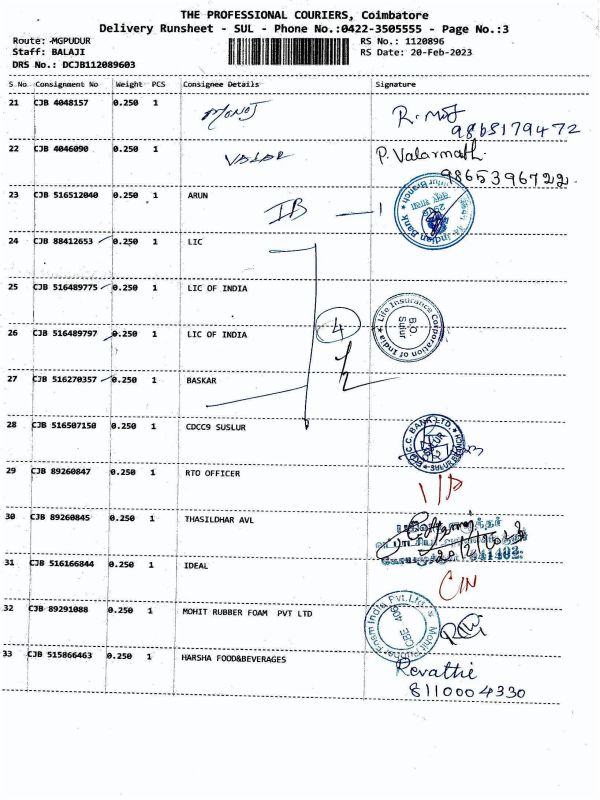 THE PROFESSIONAL COURIERS, Coimbatore
Delivery Runsheet - SUL - Phone No.:0422-3505555 - Page No.:3
Route: -MGPUDUR RS No.: 1120896
Staff: BALAJI RS Date: 20-Feb-2023
DRS No.: DCJB112089603
S No Consignment No Weight PCS Consignee Details Signature
21 CJB 4048157 0.250 1 MONOJ R. 9865179472
22 CJB 4046090 0.250 1 VALAR P. Valarmath. 9865396722
23 CJB 516512040 0.250 1 ARUN IB — 1 Indian Bank Sulur Branch
24 CJB 88412653 0.250 1 LIC
25 CJB 516489775 0.250 1 LIC OF INDIA
26 CJB 516489797 0.250 1 LIC OF INDIA 4 Life Insurance Corporation of India B.O. Sulur
27 CJB 516270357 0.250 1 BASKAR
28 CJB 516507150 0.250 1 CDCC9 SUSLUR C.C. BANK LTD. SULUR
29 CJB 89260847 0.250 1 RTO OFFICER
30 CJB 89260845 0.250 1 THASILDHAR AVL 641402.
31 CJB 516166844 0.250 1 IDEAL
32 CJB 89291088 0.250 1 MOHIT RUBBER FOAM PVT LTD Foam India Pvt. Ltd. Mohit CBE 406
33 CJB 515866463 0.250 1 HARSHA FOOD&BEVERAGES Revathi 8110004330